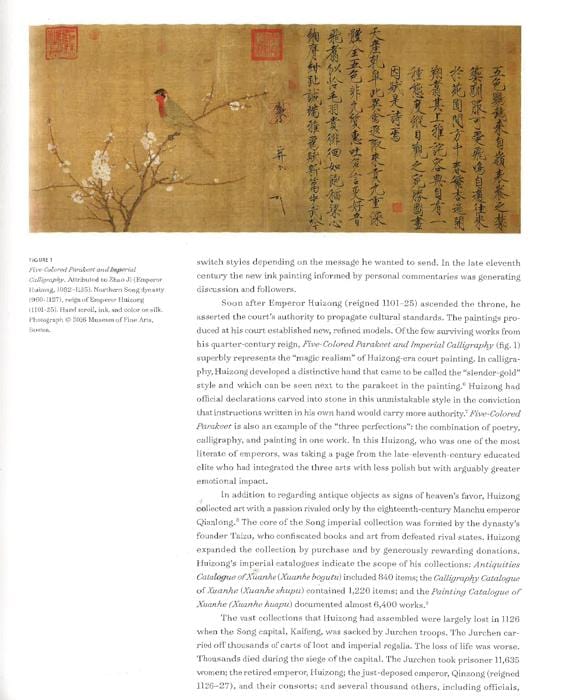 五色鸚鵡來自嶺表養之禁
籞馴服可愛飛鳴自適往來
於苑囿間方中春繁杏遍開
翔翥其上雅詫容與自有一
種態度縱目觀之宛勝圖畫
因賦是詩焉
天產乾皋此異禽遐陬來貢九重深
體全五色非凡質惠吐多言更好音
飛翥似憐毛羽貴徘徊如飽稻粱心
緗膺紺趾誠端雅為賦新篇步武吟
FIGURE 1
Five-Colored Parakeet and Imperial
Calligraphy. Attributed to Zhao Ji (Emperor
Huizong, 1082–1135). Northern Song dynasty
(960–1127), reign of Emperor Huizong
(1101–25). Hand scroll, ink, and color on silk.
Photograph © 2016 Museum of Fine Arts,
Boston.
switch styles depending on the message he wanted to send. In the late eleventh
century the new ink painting informed by personal commentaries was generating
discussion and followers.
Soon after Emperor Huizong (reigned 1101–25) ascended the throne, he
asserted the court's authority to propagate cultural standards. The paintings pro-
duced at his court established new, refined models. Of the few surviving works from
his quarter-century reign, Five-Colored Parakeet and Imperial Calligraphy (fig. 1)
superbly represents the "magic realism" of Huizong-era court painting. In calligra-
phy, Huizong developed a distinctive hand that came to be called the "slender-gold"
style and which can be seen next to the parakeet in the painting.⁶ Huizong had
official declarations carved into stone in this unmistakable style in the conviction
that instructions written in his own hand would carry more authority.⁷ Five-Colored
Parakeet is also an example of the "three perfections": the combination of poetry,
calligraphy, and painting in one work. In this Huizong, who was one of the most
literate of emperors, was taking a page from the late-eleventh-century educated
elite who had integrated the three arts with less polish but with arguably greater
emotional impact.
In addition to regarding antique objects as signs of heaven's favor, Huizong
collected art with a passion rivaled only by the eighteenth-century Manchu emperor
Qianlong.⁸ The core of the Song imperial collection was formed by the dynasty's
founder Taizu, who confiscated books and art from defeated rival states. Huizong
expanded the collection by purchase and by generously rewarding donations.
Huizong's imperial catalogues indicate the scope of his collections: Antiquities
Catalogue of Xuanhe (Xuanhe bogutu) included 840 items; the Calligraphy Catalogue
of Xuanhe (Xuanhe shupu) contained 1,220 items; and the Painting Catalogue of
Xuanhe (Xuanhe huapu) documented almost 6,400 works.⁹
The vast collections that Huizong had assembled were largely lost in 1126
when the Song capital, Kaifeng, was sacked by Jurchen troops. The Jurchen car-
ried off thousands of carts of loot and imperial regalia. The loss of life was worse.
Thousands died during the siege of the capital. The Jurchen took prisoner 11,635
women; the retired emperor, Huizong; the just-deposed emperor, Qinzong (reigned
1126–27), and their consorts; and several thousand others, including officials,